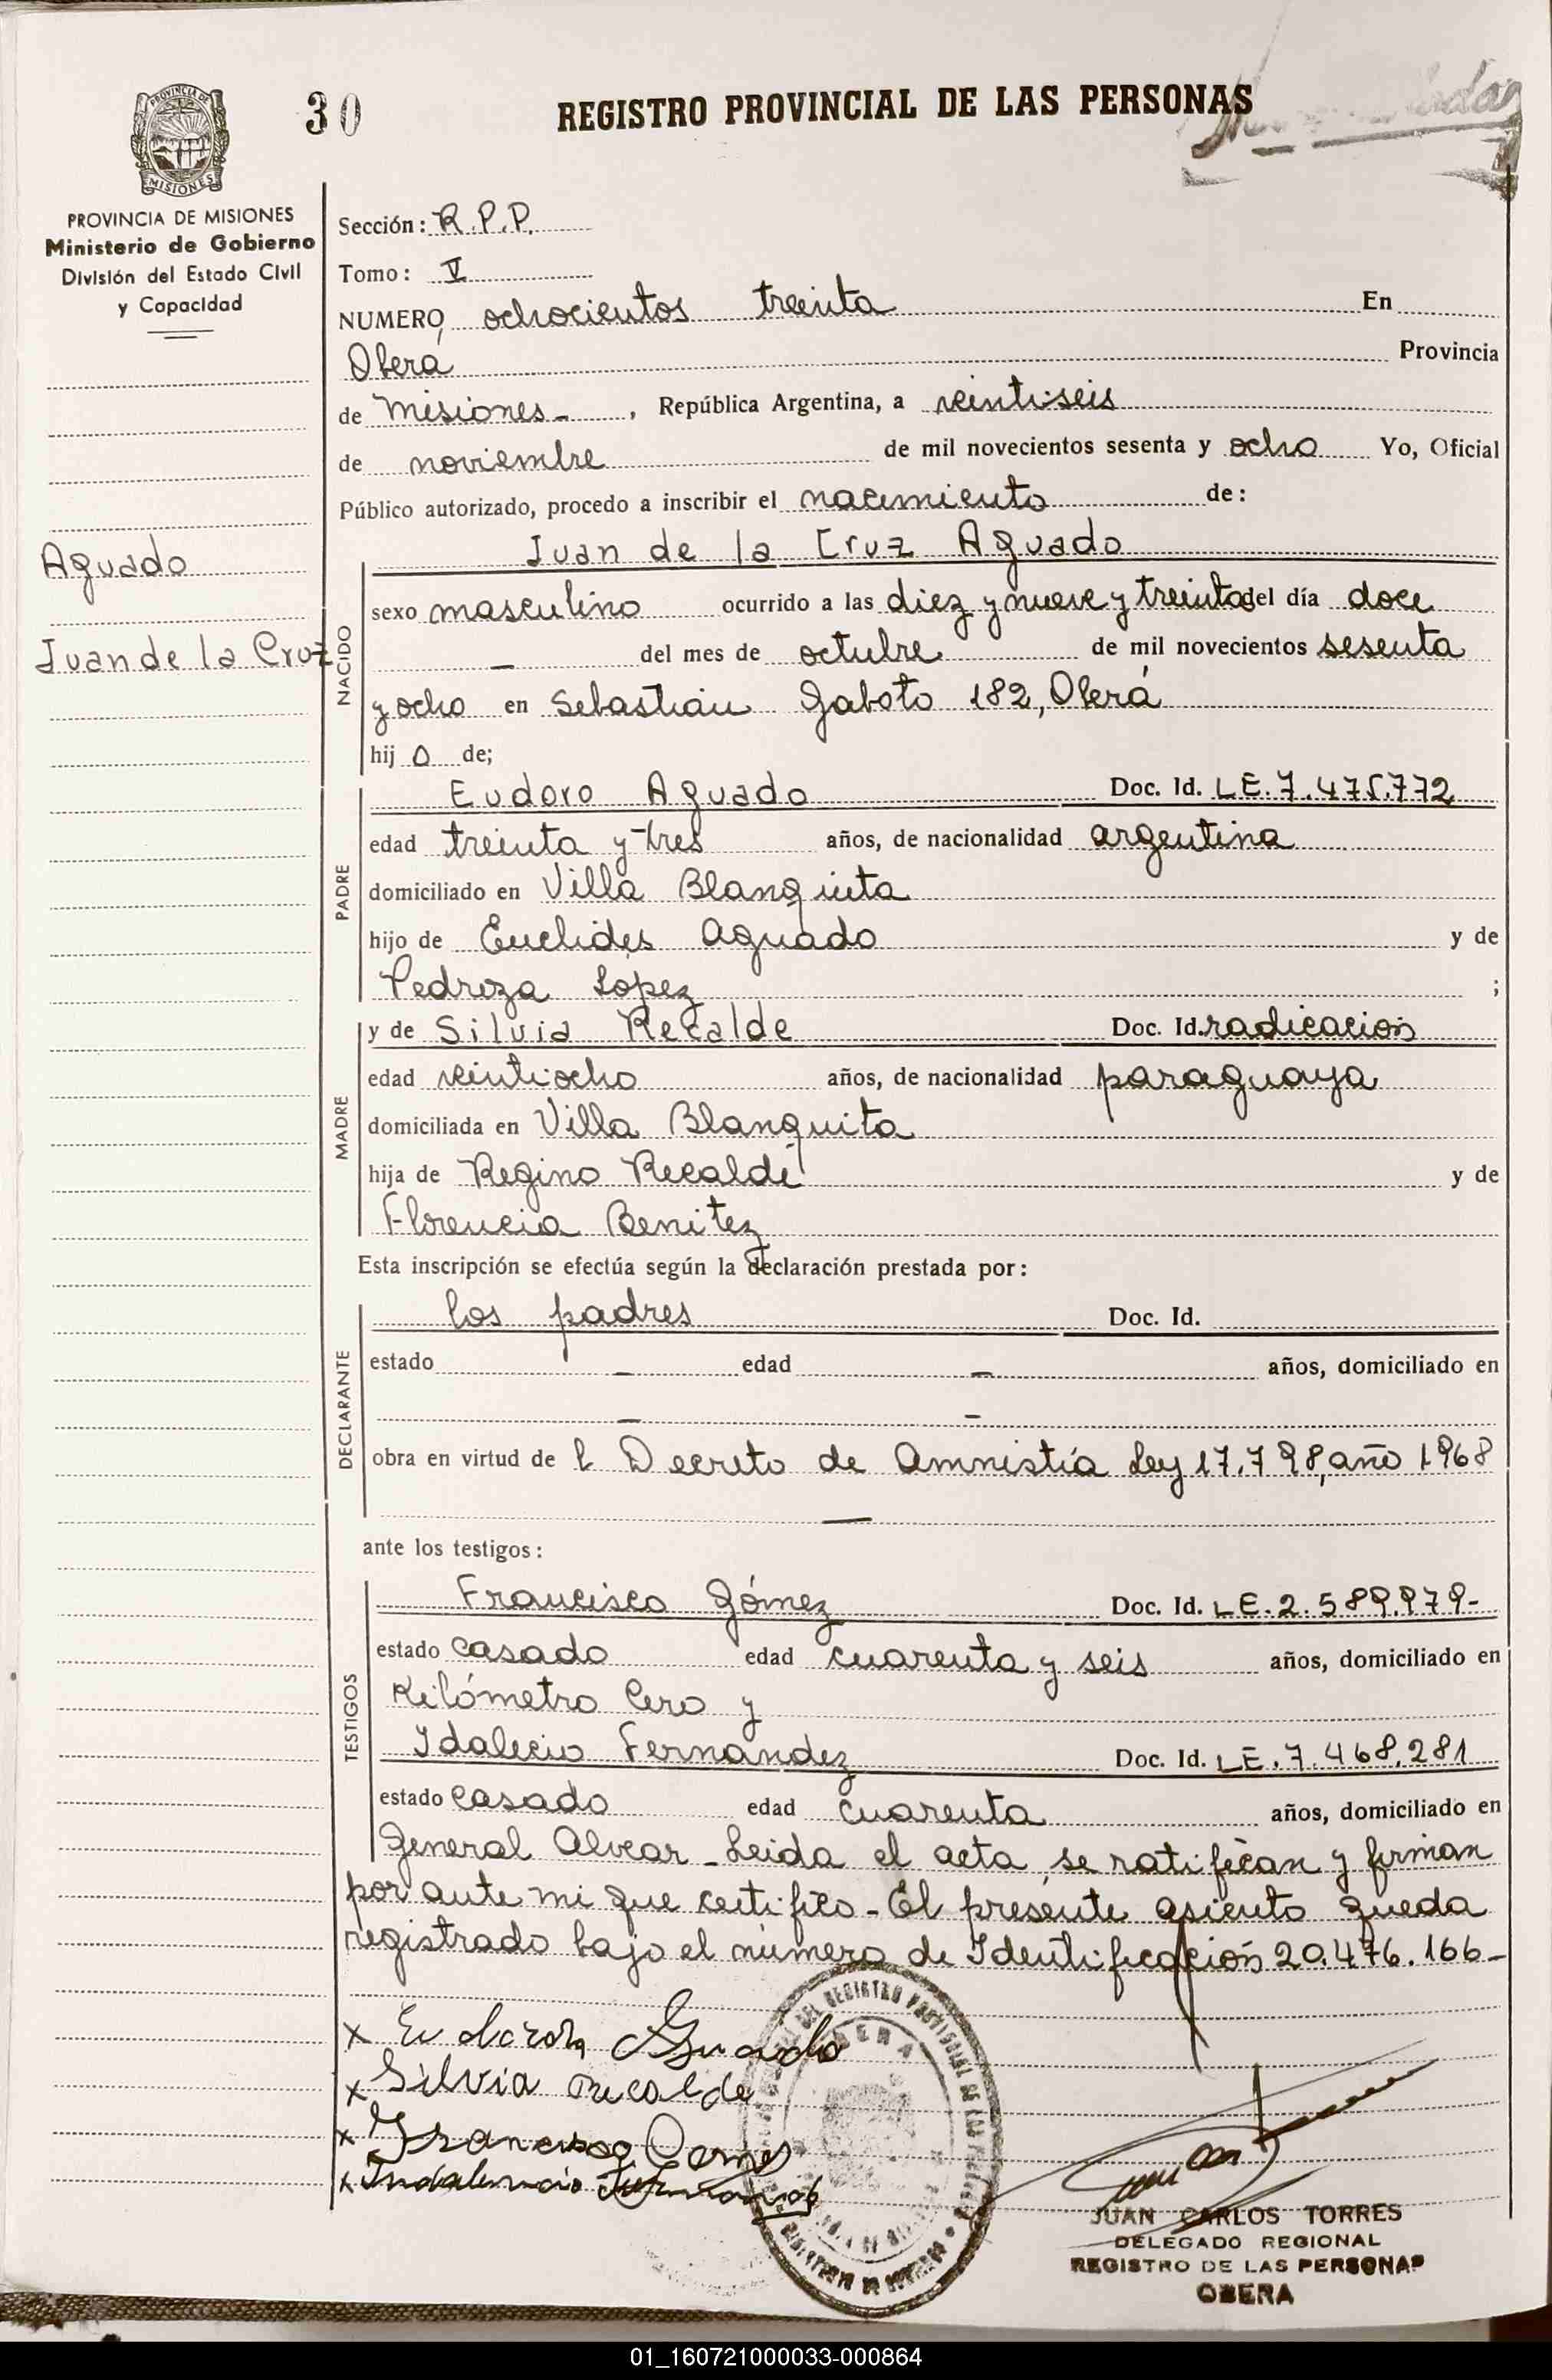 30
REGISTRO PROVINCIAL DE LAS PERSONAS
PROVINCIA DE
MISIONES
PROVINCIA DE MISIONES
Ministerio de Gobierno
División del Estado Civil
y Capacidad
Sección: R.P.P.
Tomo: V
NUMERO, ochocientos treinta En
Oberá Provincia
de Misiones-, República Argentina, a veintiseis
de noviembre de mil novecientos sesenta y ocho Yo, Oficial
Público autorizado, procedo a inscribir el nacimiento de:
Juan de la Cruz Aguado
Aguado
Juan de la Cruz
NACIDO
sexo masculino ocurrido a las diez y nueve y treinta del día doce
— del mes de octubre de mil novecientos sesenta
y ocho en Sebastián Gaboto 182, Oberá
hij o de;
PADRE
Eudoro Aguado Doc. Id. LE. 7.475.772
edad treinta y tres años, de nacionalidad argentina
domiciliado en Villa Blanquita
hijo de Euclides Aguado y de
Pedroza Lopez ;
MADRE
y de Silvia Recalde Doc. Id. radicación
edad veintiocho años, de nacionalidad paraguaya
domiciliada en Villa Blanquita
hija de Regino Recalde y de
Florencia Benitez
Esta inscripción se efectúa según la declaración prestada por:
DECLARANTE
los padres Doc. Id.
estado — edad — años, domiciliado en
— —
obra en virtud de l Decreto de Amnistía Ley 17.798, año 1968
—
ante los testigos:
TESTIGOS
Francisco Gómez Doc. Id. LE. 2.589.979-
estado casado edad cuarenta y seis años, domiciliado en
Kilómetro Cero y
Idalecio Fernández Doc. Id. LE. 7.468.281
estado casado edad cuarenta años, domiciliado en
General Alvear - Leida el acta, se ratifican y firman
por ante mi que certifico - El presente asiento queda
registrado bajo el número de Identificación 20.476.166-
x Aguado
x Silvia Recalde
x Francisco
x
DEL REGISTRO PROVINCIAL DE LAS
OBERA
JUAN CARLOS TORRES
DELEGADO REGIONAL
REGISTRO DE LAS PERSONAS
OBERA
01_160721000033-000864